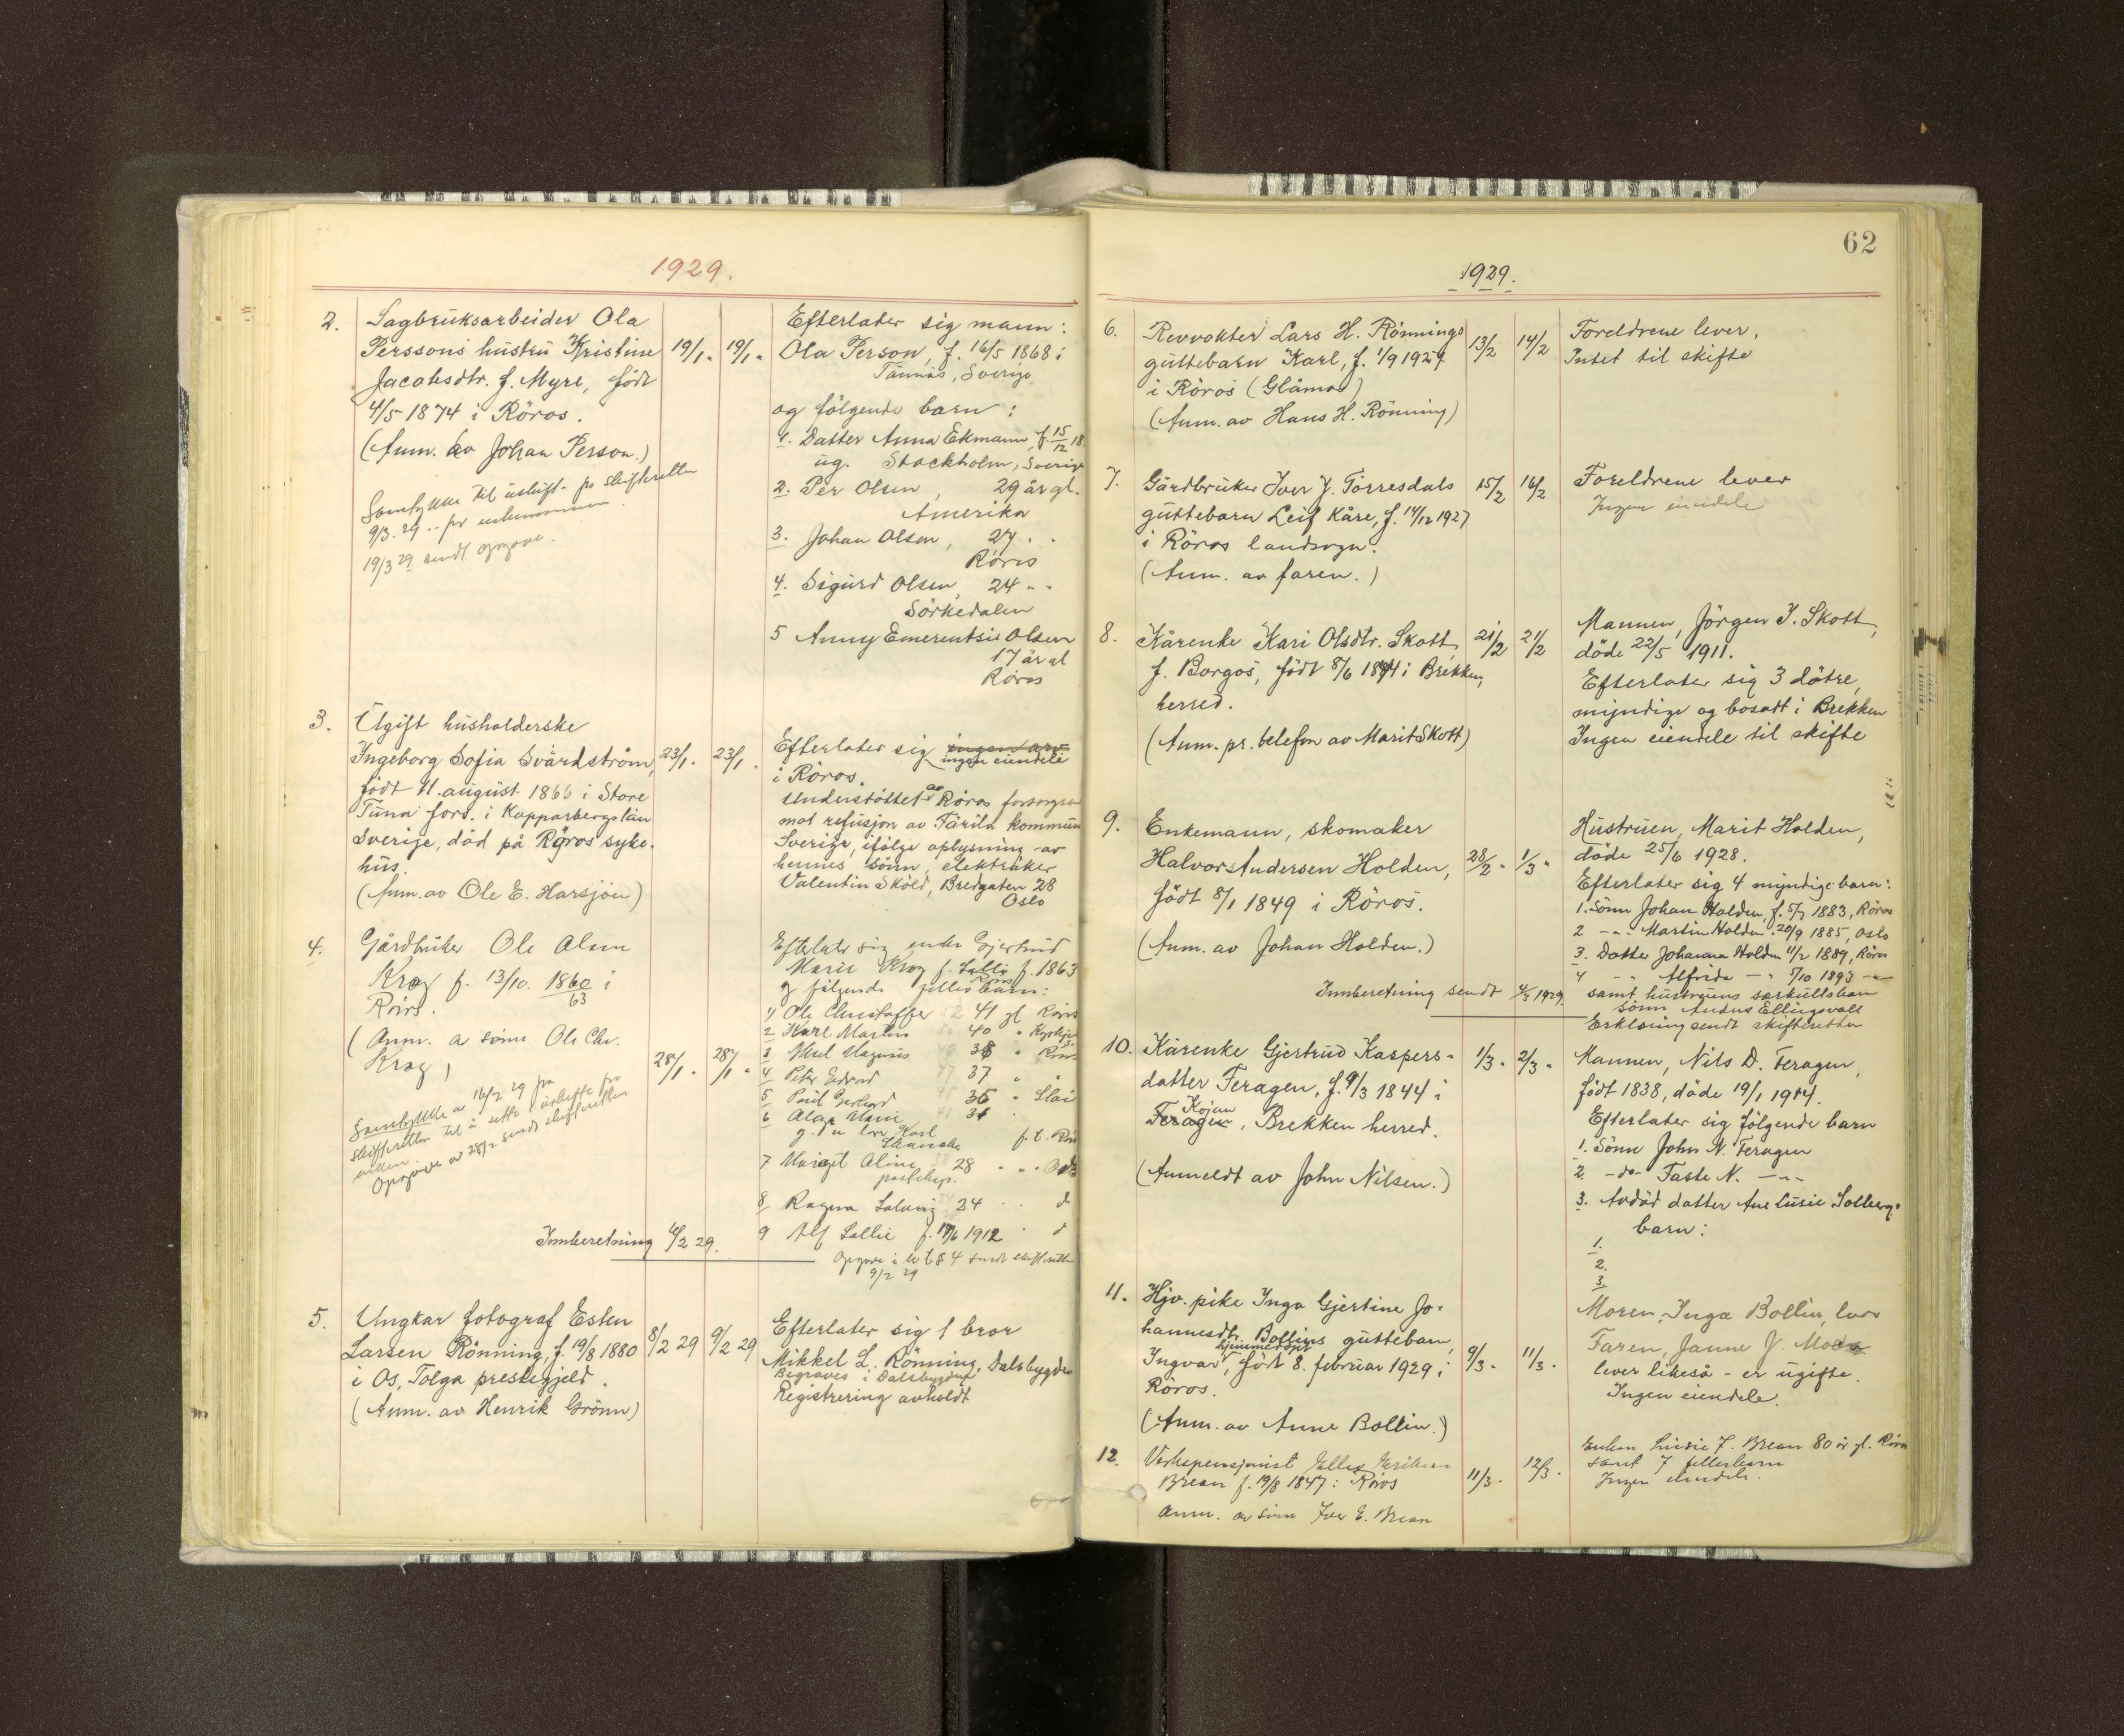 1929.
2. Sagbruksarbeider Ola
Perssons hustru Kristine 19/1. 19/1.
Jacobsdtr. f. Myre, född
4/5 1874 i Röros.
(Anm. av Johan Person.)
Samtykke til uskift. fra skifteretten
9/3. 29
19/3 29 sendt opgave.
Efterlater sig mann:
Ola Person, f. 16/5 1868 i
Tännäs, Sverige
og fölgende barn:
1. Datter Anna Ekmann, f. 15/12 18
ug. Stockholm, Sverige
2. Per Olsen, 29 år gl.
Amerika
3. Johan Olsen, 27 . .
Röros
4. Sigurd Olsen, 24 - -
Sörkedalen
5 Anny Emerentsie Olsen
17 år gl
Röros
3. Ugift husholderske
Ingeborg Sofia Svärdström, 23/1. 23/1.
født 11. august 1866 i Store
Tuna fors. i Kopparbergs län
Sverige, död på Röros syke-
hus.
(Anm. av Ole E. Harsjöen)
Efterlater sig ingen arv
ingen eiendele
i Röros.
Understöttet av Röros forsorgs
mot refusjon av Färila kommun
Sverige, ifölge oplysning av
hennes sönn, elektriker
Valentin Sköld, Bredgaten 28
Oslo
4. Gårdbruker Ole Olsen
Krog f. 13/10. 1860 i
63
Röros.
(Anm. a sönn Ole Chr.
Krog) 28/1. 28/1.
Samtykke av 16/2 29 fra
skifteretten til å sitte i uskifte fra
enken.
Opgave av 28/2 sendt skifteretten
Innberetning 6/2 29.
Efterlater sig enke Gjertrud
Marie Krog f. Sallie f. 1863
Röros
og fölgende felles barn:
1) Ole Christoffer 41 gl Röros
2 Karl Martin 40 "
3 Magnus 38 " Röros
4 Peter Edvard 37 " "
5 Paul Gerhard 36 "
6 Olga Marie 31
g. m. Karl
f. t. Rör
7 Margit Aline 28 " "
8 Ragna Solveig 24 . . d
9 Alf Sallie f. 17/6 1912 d
Opgave i h. t. § 4 sendt skifterett
9/2 29
5. Ungkar fotograf Esten
Larsen Rönning, f. 19/8 1880 8/2 29 9/2 29
i Os, Tolga prestegjeld.
(Anm. av Henrik Grönn)
Efterlater sig 1 bror
Mikkel L. Rönning, Dalsbygden
Begraves i Dalsbygden
Registrering avholdt
62
1929.
6. Revvokter Lars H. Rönnings
guttebarn Karl, f. 1/9 1927 13/2 14/2
i Röros (Glåmos)
(Anm. av Hans H. Rönning)
Foreldrene lever.
Intet til skifte
7. Gårdbruker Iver J. Torresdals 15/2 16/2
guttebarn Leif Kåre, f. 14/12 1927
i Röros landsogn.
(Anm. av faren.)
Foreldrene lever
Ingen eiendele
8. Kårenke Kari Olsdtr. Skott, 21/2 21/2
f. Borgos, født 8/6 1844 i Brekken
herred.
(Anm. pr. telefon av Marit Skott)
Mannen, Jörgen J. Skott,
döde 22/5 1911.
Efterlater sig 3 dötre,
myndige og bosatt i Brekken
Ingen eiendele til skifte
9. Enkemann, skomaker
Halvor Andersen Holden, 28/2. 1/3.
født 8/1 1849 i Röros.
(Anm. av Johan Holden.)
Hustruen, Marit Holden,
döde 25/6 1928.
Efterlater sig 4 myndige barn:
1. Sönn Johan Holden, f. 5/7 1883, Röros
2 - " - Martin Holden. 20/9 1885, Oslo
3. Datter Johanna Holden 11/2 1889, Röros
4 - " - Alfrida - " - 5/10 1893 - " -
samt hustruens særkullsbarn
sönn Anders Ellingsvoll
Erklæring sendt skifteretten
Innberetning sendt 4/3 1929
10. Kårenke Gjertrud Kaspers- 1/3. 2/3.
datter Feragen, f. 9/3 1844 i
Kojan
Feragen, Brekken herred.
(Anmeldt av John Nilsen.)
Mannen, Nils D. Feragen,
født 1838, döde 19/1 1914.
Efterlater sig fölgende barn
1. Sönn John N. Feragen
2. - do - Faste N. - " -
3. Avdöd datter Ane Lusie Solberg
barn:
1.
2.
3
11. Hjv. pike Inga Gjertine Jo-
hannesdtr. Bollins guttebarn,
hjemmedöpt
Ingvar, född 8. februar 1929 i 9/3. 11/3.
Röros.
(Anm. av Anne Bollin.)
Moren, Inga Bollin, lever
Faren, Janne J. Moen
lever likeså - er ugifte.
Ingen eiendele.
12. Verkspensjonist Elling Eriksen
Brean f. 19/8 1847 i Röros 11/3. 12/3.
Anm. av sönn Iver E. Brean
Enken Lusie J. Brean 80 år gl. Röros
samt 7 fellesbarn
Ingen eiendele.